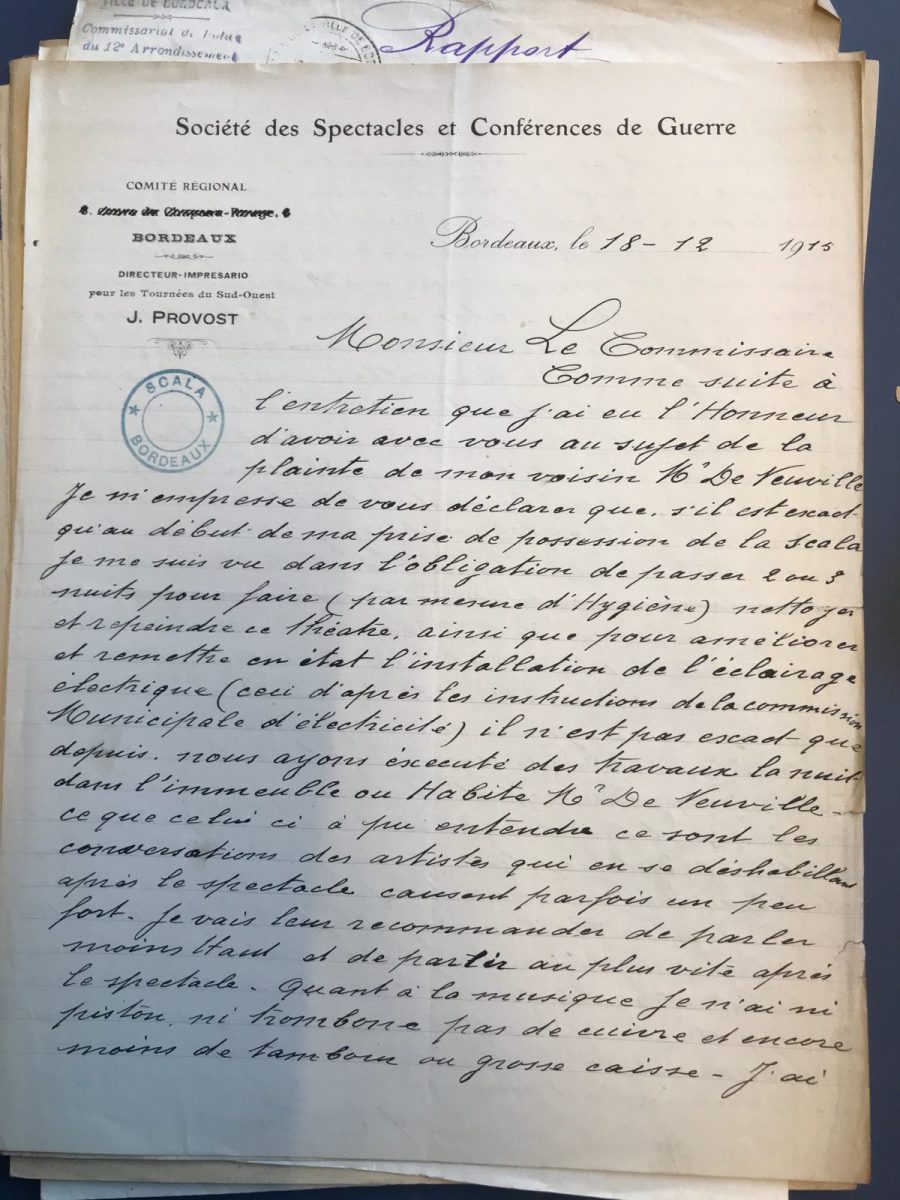 VILLE DE BORDEAUX
Commissariat de Police
du 12e Arrondissement
Rapport
Société des Spectacles et Conférences de Guerre
COMITÉ RÉGIONAL
8. Cours du Chapeau-Rouge, 8
BORDEAUX
DIRECTEUR-IMPRESARIO
pour les Tournées du Sud-Ouest
J. PROVOST
Bordeaux, le 18 - 12 1915
SCALA
BORDEAUX
Monsieur Le Commissaire
Comme suite à
l'entretien que j'ai eu l'Honneur
d'avoir avec vous au sujet de la
plainte de mon voisin Mr De Neuville
Je m'empresse de vous déclarer que, s'il est exact
qu'au début de ma prise de possession de la Scala
je me suis vu dans l'obligation de passer 2 ou 3
nuits pour faire (par mesure d'Hygiène) nettoyer
et repeindre ce théâtre, ainsi que pour améliorer
et remettre en état l'installation de l'éclairage
électrique (ceci d'après les instructions de la commission
Municipale d'électricité) il n'est pas exact que
depuis, nous ayons éxecuté des travaux la nuit
dans l'immeuble ou Habite Mr De Neuville -
ce que celui ci à pu entendre ce sont les
conversations des artistes qui en se déshabillant
après le spectacle causent parfois un peu
fort - Je vais leur recommander de parler
moins Haut et de partir au plus vite après
le spectacle - Quant à la musique je n'ai ni
piston, ni trombone pas de cuivre et encore
moins de tambour ou grosse caisse - J'ai